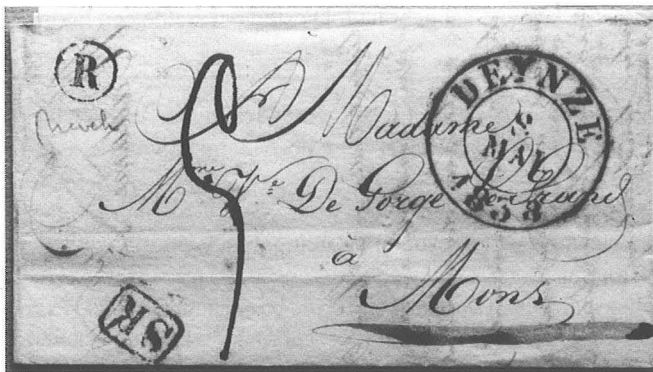 R
DEYNZE
8
MAI
1838
A Madame
Mme Ve De Gorge Legrand
à
Mons
5
SR